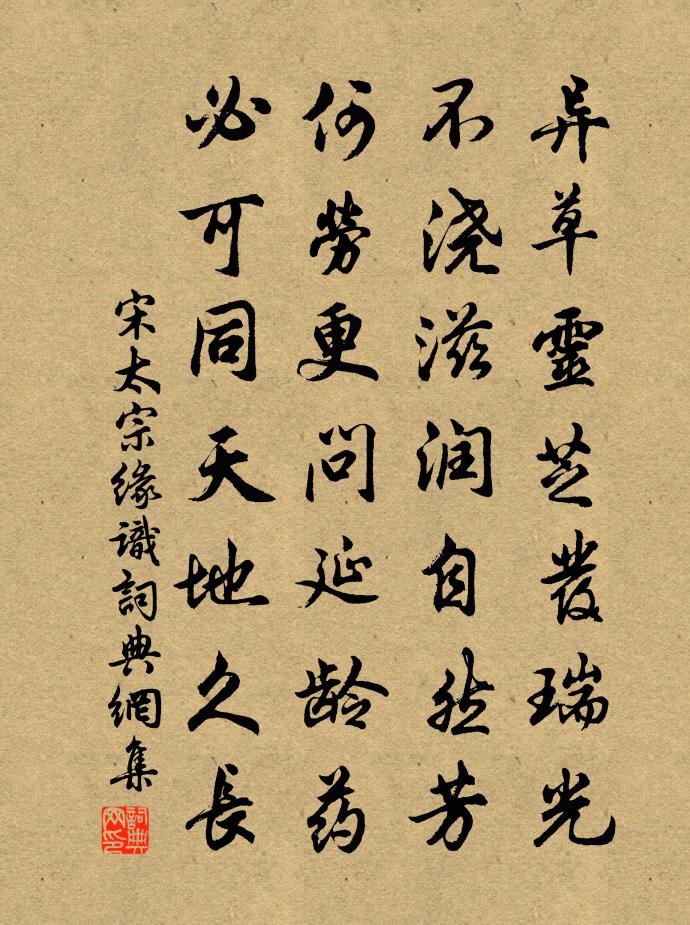 异草靈芝發瑞光
不浇滋润自然芳
何勞更问延龄药
必可同天地久長
宋太宗緣識詞典網集
詞典网印